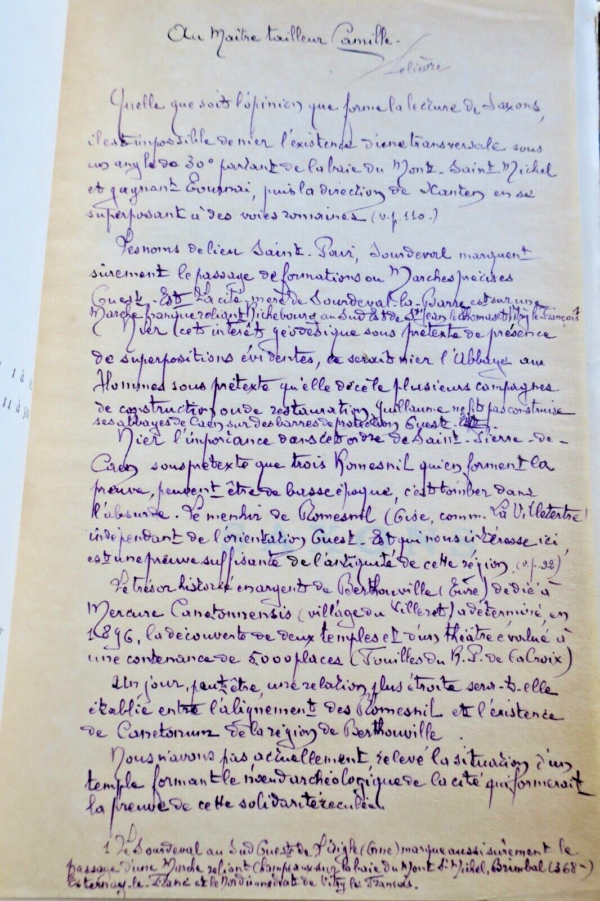 Au Maître tailleur Camille
Lelièvre
Quelle que soit l'opinion que forme la lecture de Saxons,
il est impossible de nier l'existence d'une transversale sous
un angle de 30° partant de la baie du Mont-Saint Michel
et gagnant Tournai, puis la direction de Xanten en se
superposant à des voies romaines (v. p. 110.)
Les noms de lieu Saint-Pair, Sourdeval marquent
sûrement le passage de formations ou Marches précises
Ouest-Est. La Cité mère de Sourdeval-la-Barre est sur une
Marche franque reliant Richebourg au Sud Est de St Jean le Thomas et Vitry le François
Nier cet intérêt géodésique sous prétexte de présence
de superpositions évidentes, ce serait nier l'Abbaye aux
Hommes sous prétexte qu'elle décèle plusieurs campagnes
de construction ou de restauration, Guillaume ne fit pas construire
ses abbayes de Caen sur des barres de protection Ouest-Est.
Nier l'importance dans cet ordre de Saint-Pierre-de-
Caen sous prétexte que trois Romesnil qui en forment la
preuve, peuvent être de basse époque, c'est tomber dans
l'absurde. Le menhir de Romesnil (Oise, comm. La Villetertre)
indépendant de l'orientation Ouest-Est qui nous intéresse ici,
est une preuve suffisante de l'antiquité de cette région (v. p. 92)
Le trésor historié en argent de Berthouville (Eure) dédié à
Mercure Canetonnensis (village du Villeret) a déterminé en
1896, la découverte de deux temples et d'un théâtre évalué à
une contenance de 5000 places (Fouilles du R. P. de la Croix)
Un jour, peut-être, une relation plus étroite sera-t-elle
établie entre l'alignement des Romesnil et l'existence
de Canetonum de la région de Berthouville
Nous n'avons pas actuellement relevé la situation d'un
temple formant le nœud archéologique de la cité qui formerait
la preuve de cette solidarité reculée.
1 Le Sourdeval au Sud Ouest de l'Aigle (Orne) marque aussi sûrement le
passage d'une Marche reliant Champeaux sur la baie du Mont St Michel, Brimbal (368-)
Esternay-le-Franc et le Nord immédiat de Vitry le François.